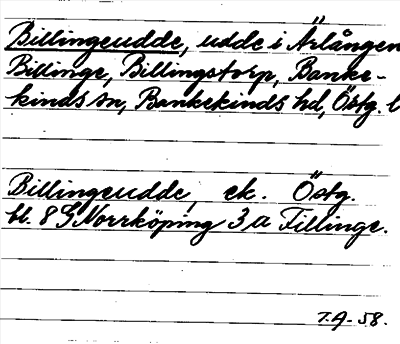 Billingeudde, udde i Ärlången
Billinge, Billingstorp, Banke-
kinds sn, Bankekinds hd, Östg. l
Billingeudde, ek. Östg.
bl. 8 G Norrköping 3 a Fillinge.
7.4-58.